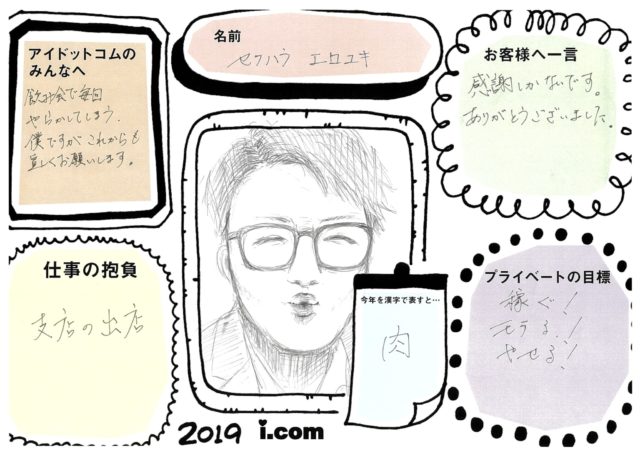 アイドットコムの
みんなへ
飲み会で毎回
やらかしてしまう、
僕ですが これからも
宜しくお願いします。
名前
セクハラ エロユキ
お客様へ一言
感謝しかないです。
ありがとうございました。
仕事の抱負
支店の出店
今年を漢字で表すと…
肉
プライベートの目標
稼ぐ!
モテる!
やせる!
2019 i.com